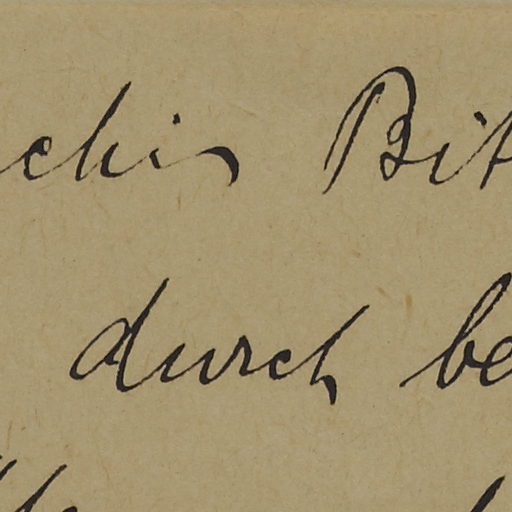 chis Bit
durch be